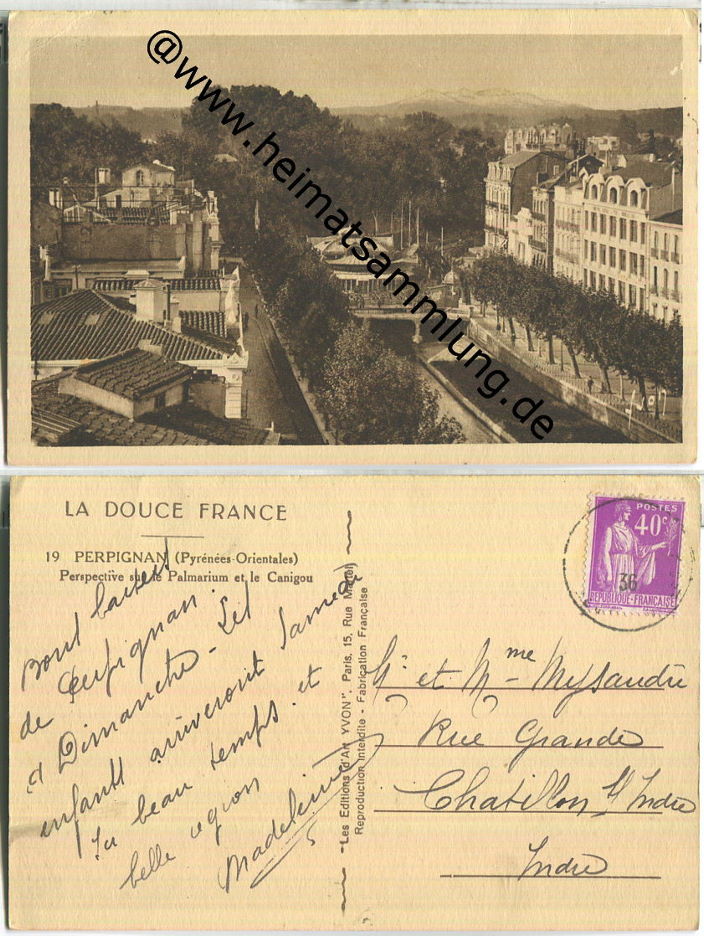 @www.heimatsammlung.de
LA DOUCE FRANCE
19 PERPIGNAN (Pyrénées-Orientales)
Perspective sur le Palmarium et le Canigou
de Perpignan.
Dimanche -
enfants arriveront Samedi
beau temps et
belle region
Madeleine
"Les Editions d'Art YVON", Paris, 15, Rue Martel
Reproduction Interdite - Fabrication Française
POSTES
40c
REPUBLIQUE-FRANÇAISE
36
Mr et Mme Mysandre
Rue Grande
Chatillon s/ Indre
Indre